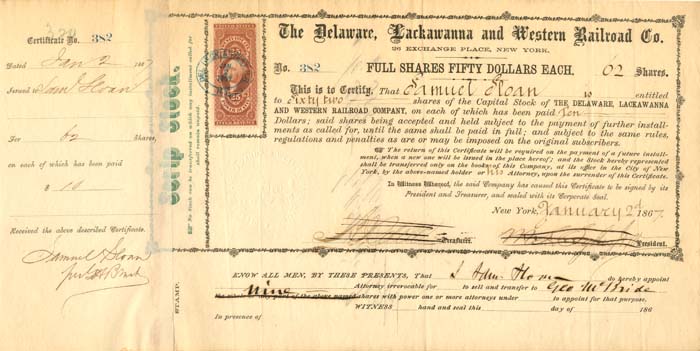 320
Certificate No. 382
Dated Jan 2 1867
Issued to Sam Sloan
For 62 Shares,
on each of which has been paid
$ 10
Received the above described Certificate.
Samuel Sloan
Scrip Stock.
STAMP.
25
The Delaware, Lackawanna and Western Railroad Co.
26 EXCHANGE PLACE, NEW YORK.
No. 382 FULL SHARES FIFTY DOLLARS EACH. 62 Shares.
This is to Certify, That Samuel Sloan is entitled
to Sixty two shares of the Capital Stock of THE DELAWARE, LACKAWANNA
AND WESTERN RAILROAD COMPANY, on each of which has been paid Ten
Dollars; said shares being accepted and held subject to the payment of further install-
ments as called for, until the same shall be paid in full; and subject to the same rules,
regulations and penalties as are or may be imposed on the original subscribers.
The return of this Certificate will be required on the payment of a future install-
ment, when a new one will be issued in the place hereof; and the Stock hereby represented
shall be transferred only on the books of the Company, at its office in the City of New
York, by the above-named holder or his Attorney, upon the surrender of this Certificate.
In Witness Whereof, the said Company has caused this Certificate to be signed by its
President and Treasurer, and sealed with its Corporate Seal.
New York, January 2d 1867.
Treasurer. President.
KNOW ALL MEN, BY THESE PRESENTS, That I do hereby appoint
Attorney irrevocable for to sell and transfer to Geo McBride
Nine of the above named shares with power one or more attorneys under to appoint for that purpose.
WITNESS hand and seal this day of 186
In presence of